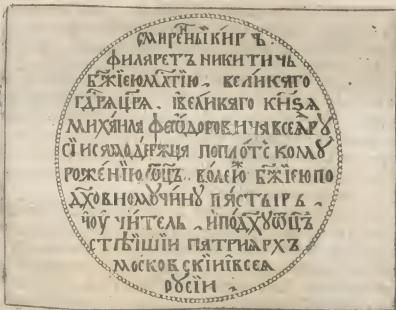 СМИРЕННЫЙ КИР Ъ
ФИЛАРЕТЪ НИКИТИЧЬ
БЖЇЕЮ МЛТЇЮ . ВЕЛИКАГО
ГДРѦ ЦРѦ . ІВЕЛИКАГО КНЅѦ
МИХАИЛА ФЕѠДОРОВИЧА ВСЕѦ РУ
СЇИ И САМОДЕРЖЦА ПОПЛОТСКОМУ
РОЖЕНЇЮ ѾЦЪ . ВОЛЕЮ БЖЇЕЮ ПО
ДХОВНОМУ ЧИНУ ПАСТЫРЬ .
УЧИТЕЛЬ . И
СТѢЙШЇИ ПАТРИАРХЪ
МОСКОВСКЇИ ЇВСЕА
РУСЇИ .